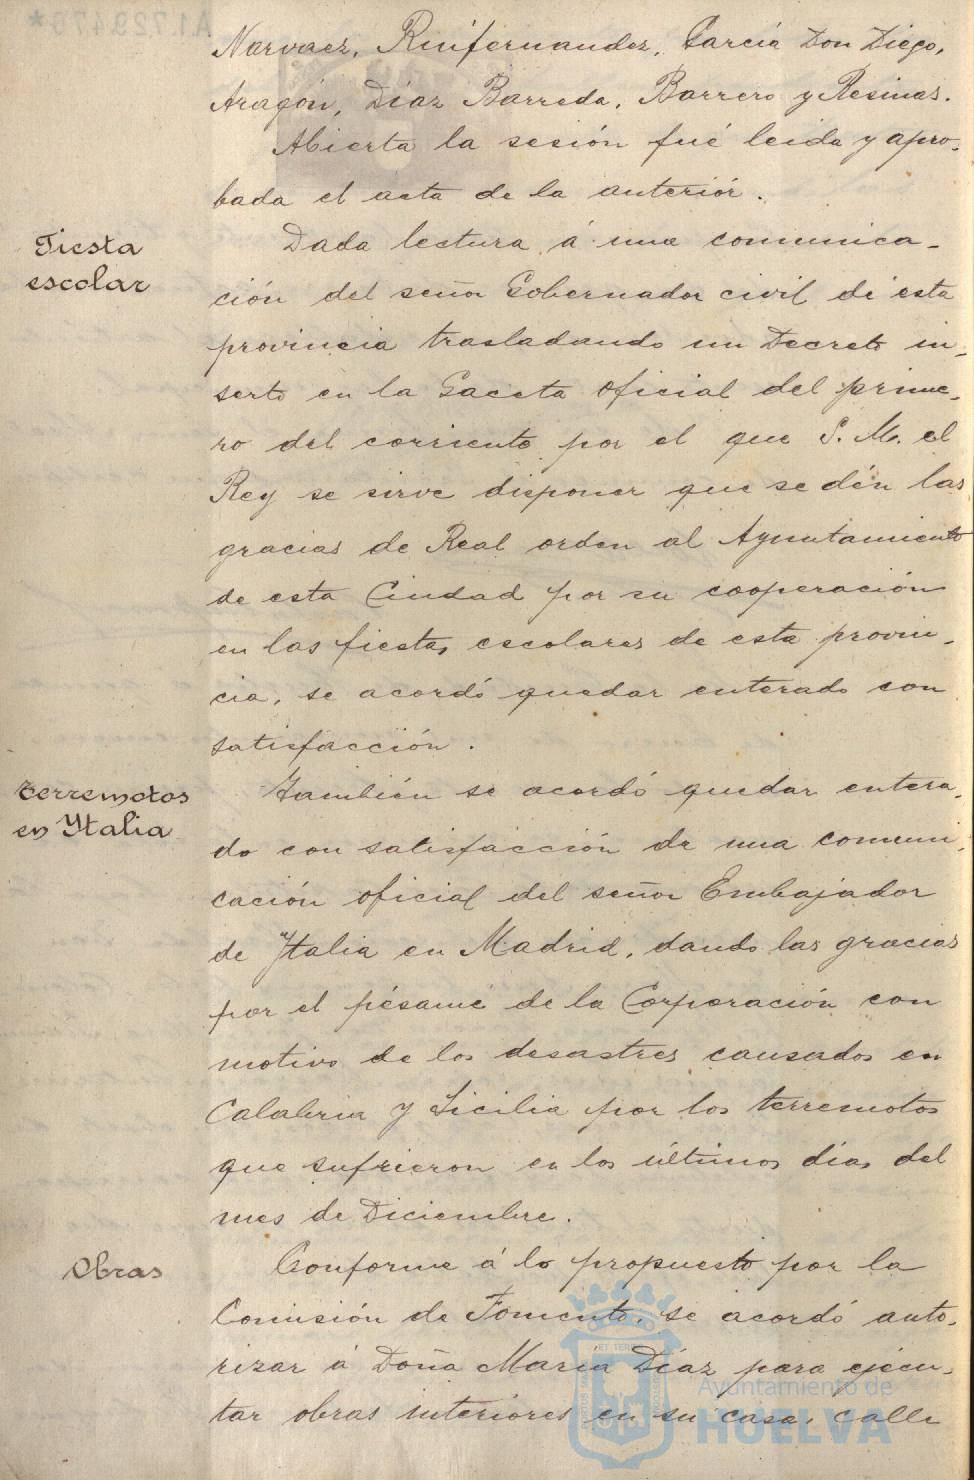 Narvaez, Ruifernandez, García Don Diego,
Aragón, Díaz Barreda, Barrero y Resinas.
Abierta la sesión fué leida y apro-
bada el acta de la anteriór.
Fiesta
escolar
Dada lectura á una comunica-
ción del señor Gobernador civil de esta
provincia trasladando un Decreto in-
serto en la Gaceta oficial del prime-
ro del corriente por el que S. M. el
Rey se sirve disponer que se dén las
gracias de Real orden al Ayuntamiento
de esta Ciudad por su cooperación
en las fiestas escolares de esta provin-
cia, se acordó quedar enterado con
satisfacción.
terremotos
en Ytalia
También se acordó quedar entera-
do con satisfacción de una comuni-
cación oficial del señor Embajador
de Ytalia en Madrid, dando las gracias
por el pésame de la Corporación con
motivo de los desastres causados en
Calabria y Sicilia por los terremotos
que sufrieron en los últimos días del
mes de Diciembre.
Obras
Conforme á lo propuesto por la
Comisión de Fomento, se acordó auto-
rizar á Doña María Díaz para ejecu-
tar obras interiores en su casa, calle
Ayuntamiento de
HUELVA